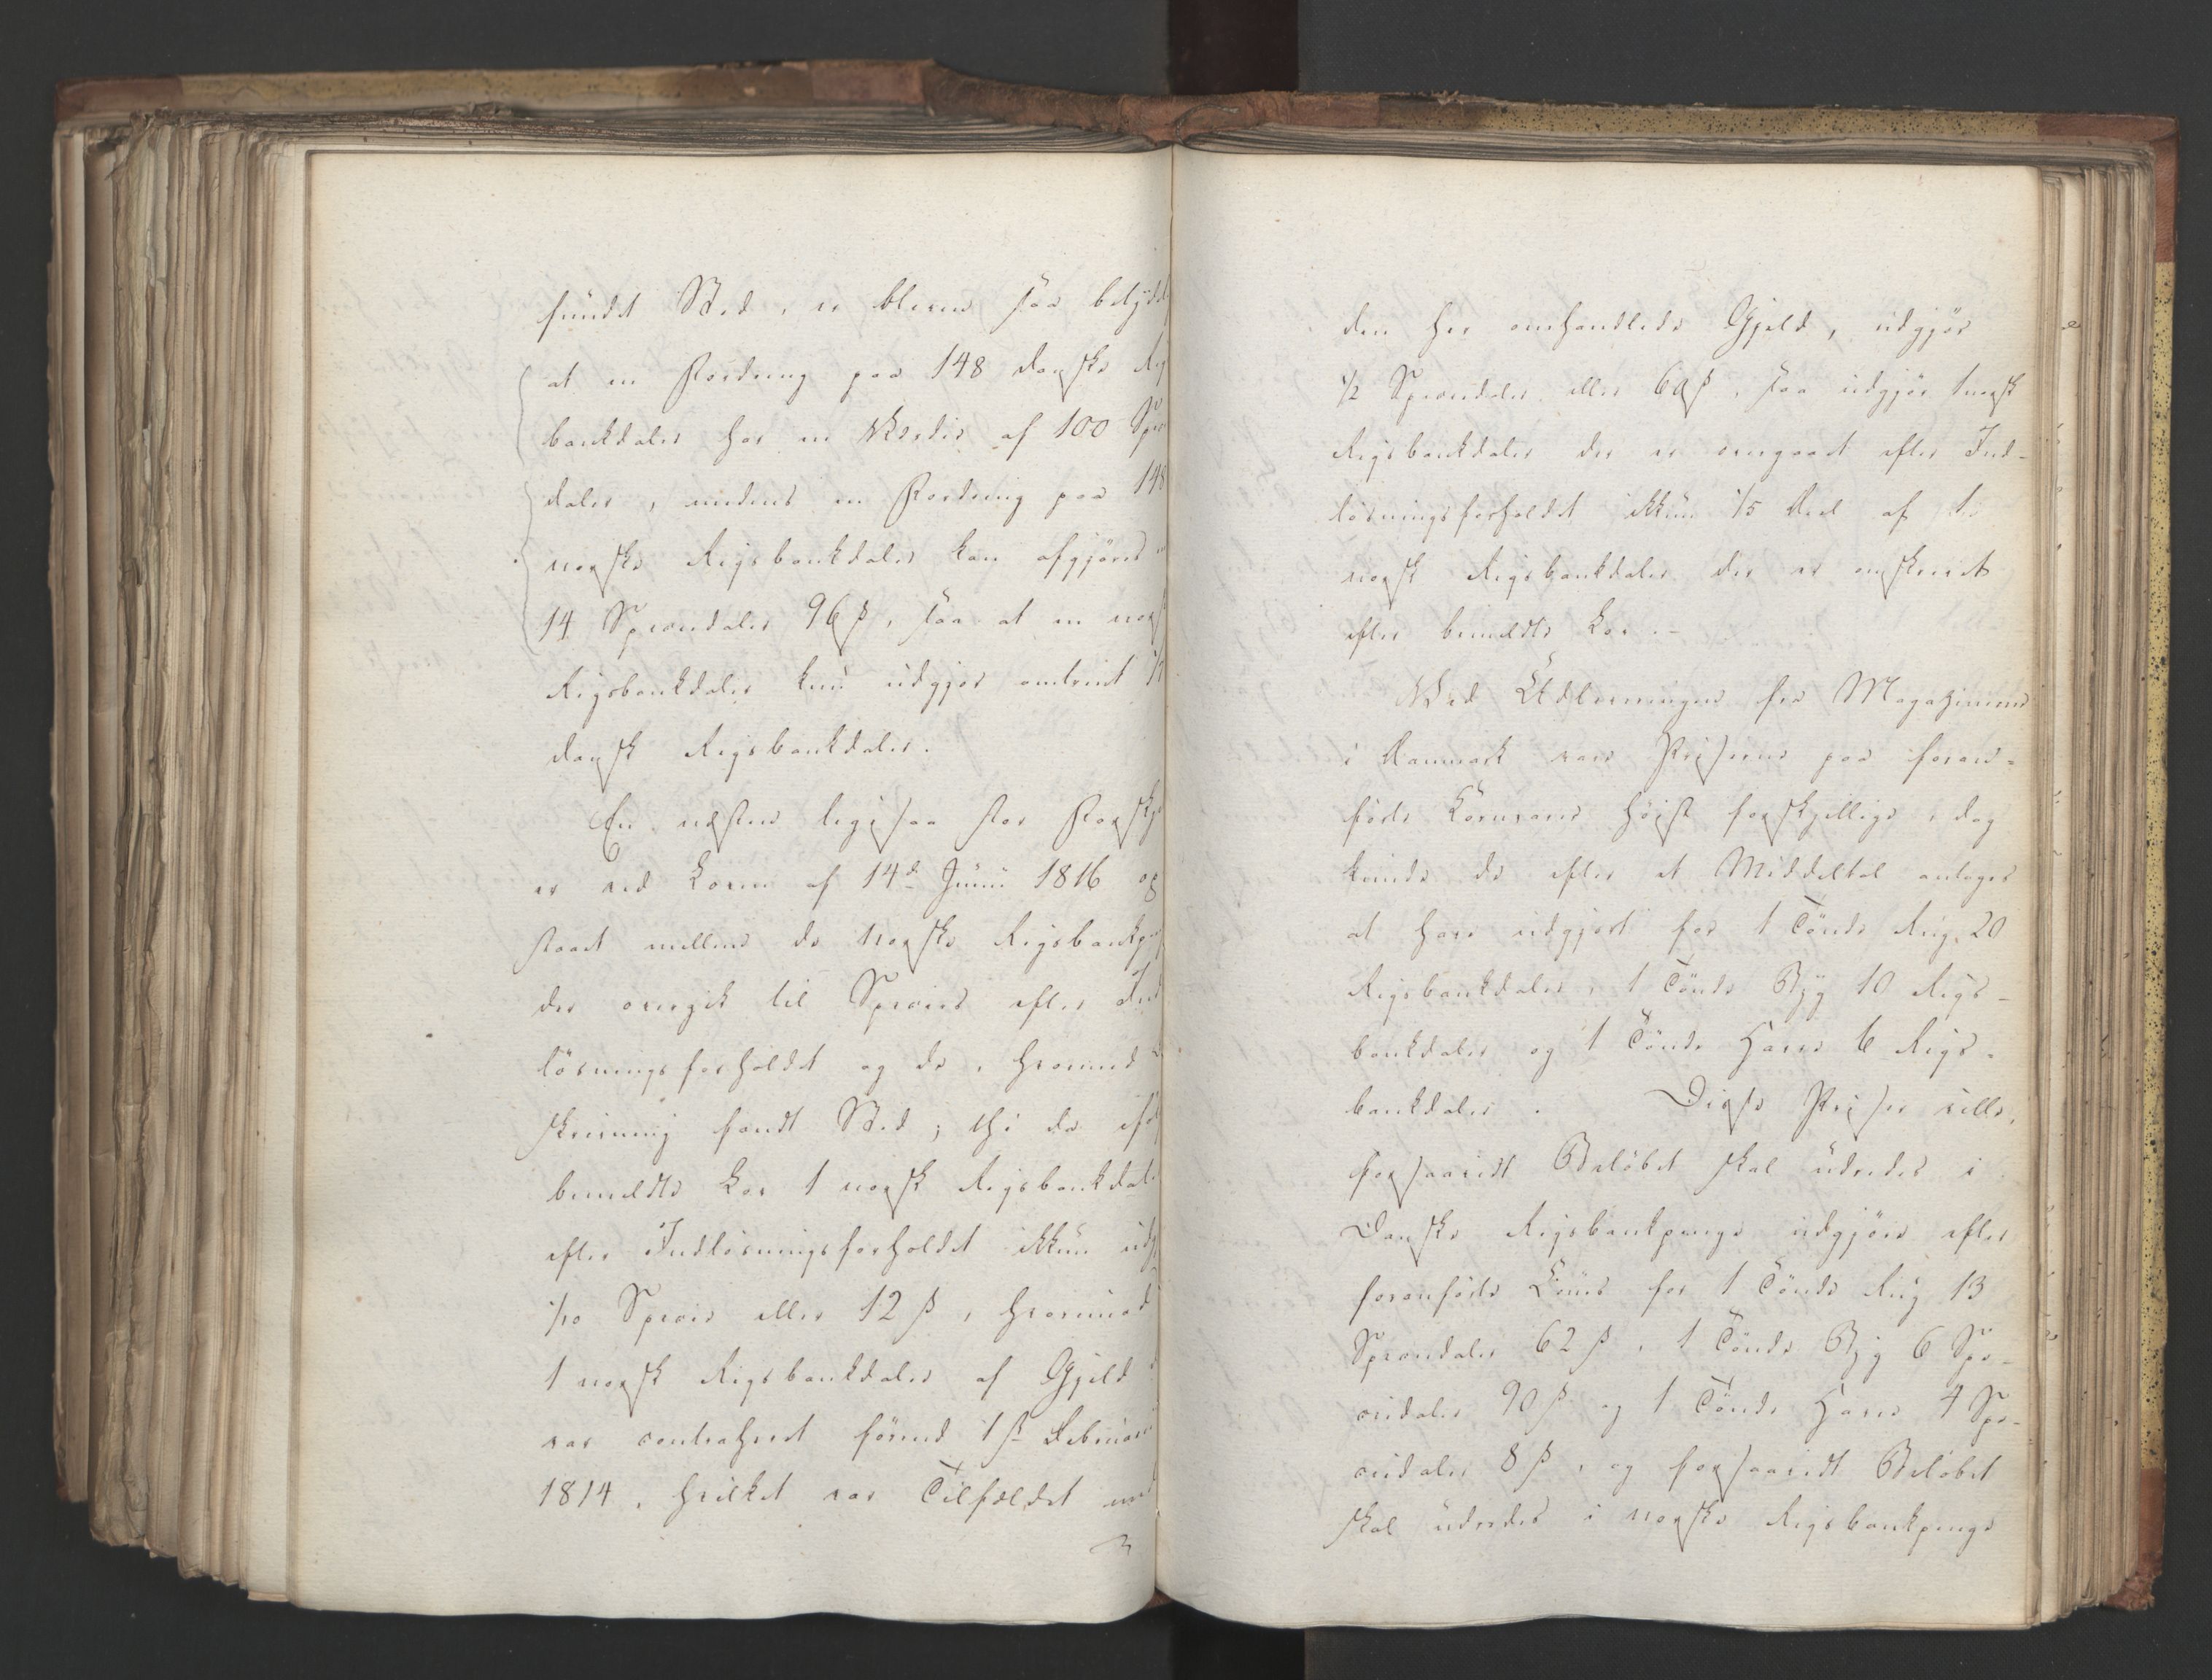 fundet Sted, er bleven saa betyde
at en Fordring paa 148 danske Rig
bankdaler har en Værdie af 100 Spe
daler, medens en Fordring paa 148
norske Rigsbankdaler kan afgjøres
14 Speciesdaler 96 ß, saa at en norsk
Rigsbankdaler kun udgjør omtrent 1/7
dansk Rigsbankdaler.
En næsten ligesaa stor Forskje
er ved Loven af 14de Junii 1816 op
staaet mellem de norske Rigsbankpen
der overgik til Species efter Ind
løsningsforholdet og de, hvormed
skrivning fandt Sted; thi da efter
bemeldte Lov 1 norsk Rigsbankdale
efter Indløsningsforholdet ikkun udg
1/10 Specie eller 12 ß, hvorimod
1 norsk Rigsbankdaler af Gjeld
var contraheret førend 1ste Februari
1814, hvilket var Tilfældet med
den her omhandlede Gjeld, udgjør
1/2 Speciesdaler eller 60 ß, saa udgjør 1 norsk
Rigsbankdaler der er overgaaet efter Ind-
løsningsforholdet ikkun 1/5 Deel af 1
norsk Rigsbankdaler der er omskrevet
efter bemeldte Lov.-
Ved Udleveringen fra Magazinerne
i Danmark vare Priserne paa foran-
førte Kornvare høist forskjellige, dog
kunde de efter et Middeltal antages
at have udgjort for 1 Tønde Rug 20
Rigsbankdaler, 1 Tønde Byg 10 Rigs-
bankdaler og 1 Tønde Havre 6 Rigs-
bankdaler. Disse Priser ville,
forsaavidt Beløbet skal udredes i
Danske Rigsbankpenge udgjøre efter
foranførte Cours for 1 Tønde Rug 13
Speciesdaler 62 ß, 1 Tønde Byg 6 Spe-
ciesdaler 90 ß og 1 Tønde Havre 4 Spe-
ciesdaler 8 ß, og forsaavidt Beløbet
skal udredes i norske Rigsbankpenge